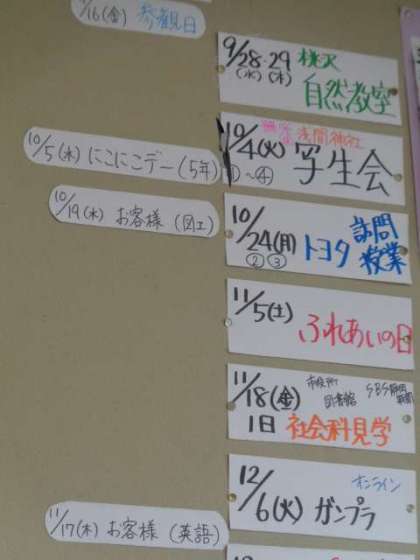 /16(金) 参観日
9/28・29 桃沢
(水)(木) 自然教室
10/4(火) 浅間神社
①~④ 学生会
10/5(水) にこにこデー(5年)
10/19(水) お客様 (図工)
10/24(月) トヨタ 訪問授業
②③
11/5(土) ふれあいの日
11/18(金) 市役所 図書館 SBS静岡新聞
1日 社会科見学
12/6(火) オンライン ガンプラ
11/17(木) お客様 (英語)